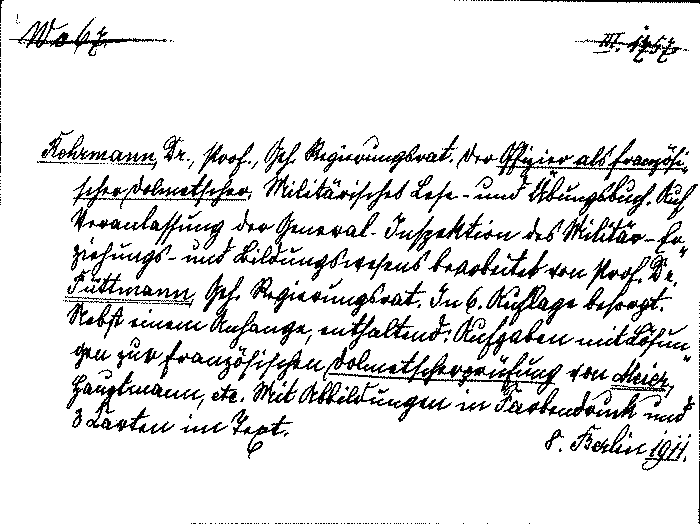 Wo 67. III. 1757.
Rohrmann, Dr., Prof., Geh. Regierungsrat. Der Offizier als französi„
scher Dolmetscher, Militärisches Lese- und Übungsbuch. Auf
Veranlassung der General-Inspektion des Militär-Er„
ziehungs- und Bildungswesens bearbeitet von Prof. Dr.
Püttmann, Geh. Regierungsrat. In 6. Auflage besorgt.
Nebst einem Anhange, enthaltend: Aufgaben mit Lösun„
gen zur französischen Dolmetscherprüfung von Meier,
Hauptmann, etc. Mit Abbildungen in Farbendruck und
3 Karten im Text.
8. Berlin 1911.